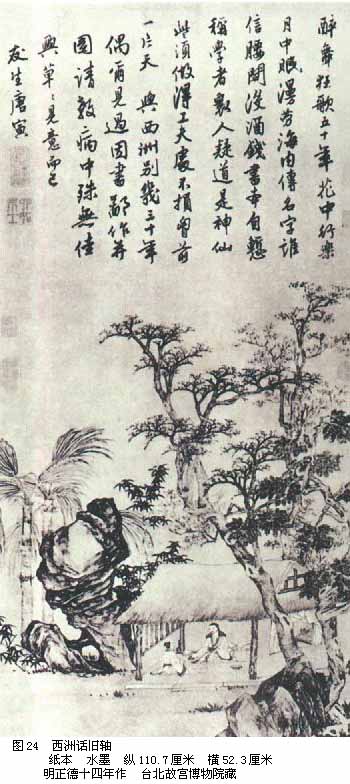 醉舞狂歌五十年花中行樂
月中眠漫勞海內傳名字誰
信腰間沒酒錢書本自慙
稱學者衆人疑道是神仙
些須做得工夫處不損胸前
一片天 與西洲別幾三十年
偶爾見過因書鄙作并
圖請教病中殊無佳
興草〻見意而已
友生唐寅
图24 西洲话旧轴
纸本 水墨 纵110.7厘米 横52.3厘米
明正德十四年作 台北故宫博物院藏